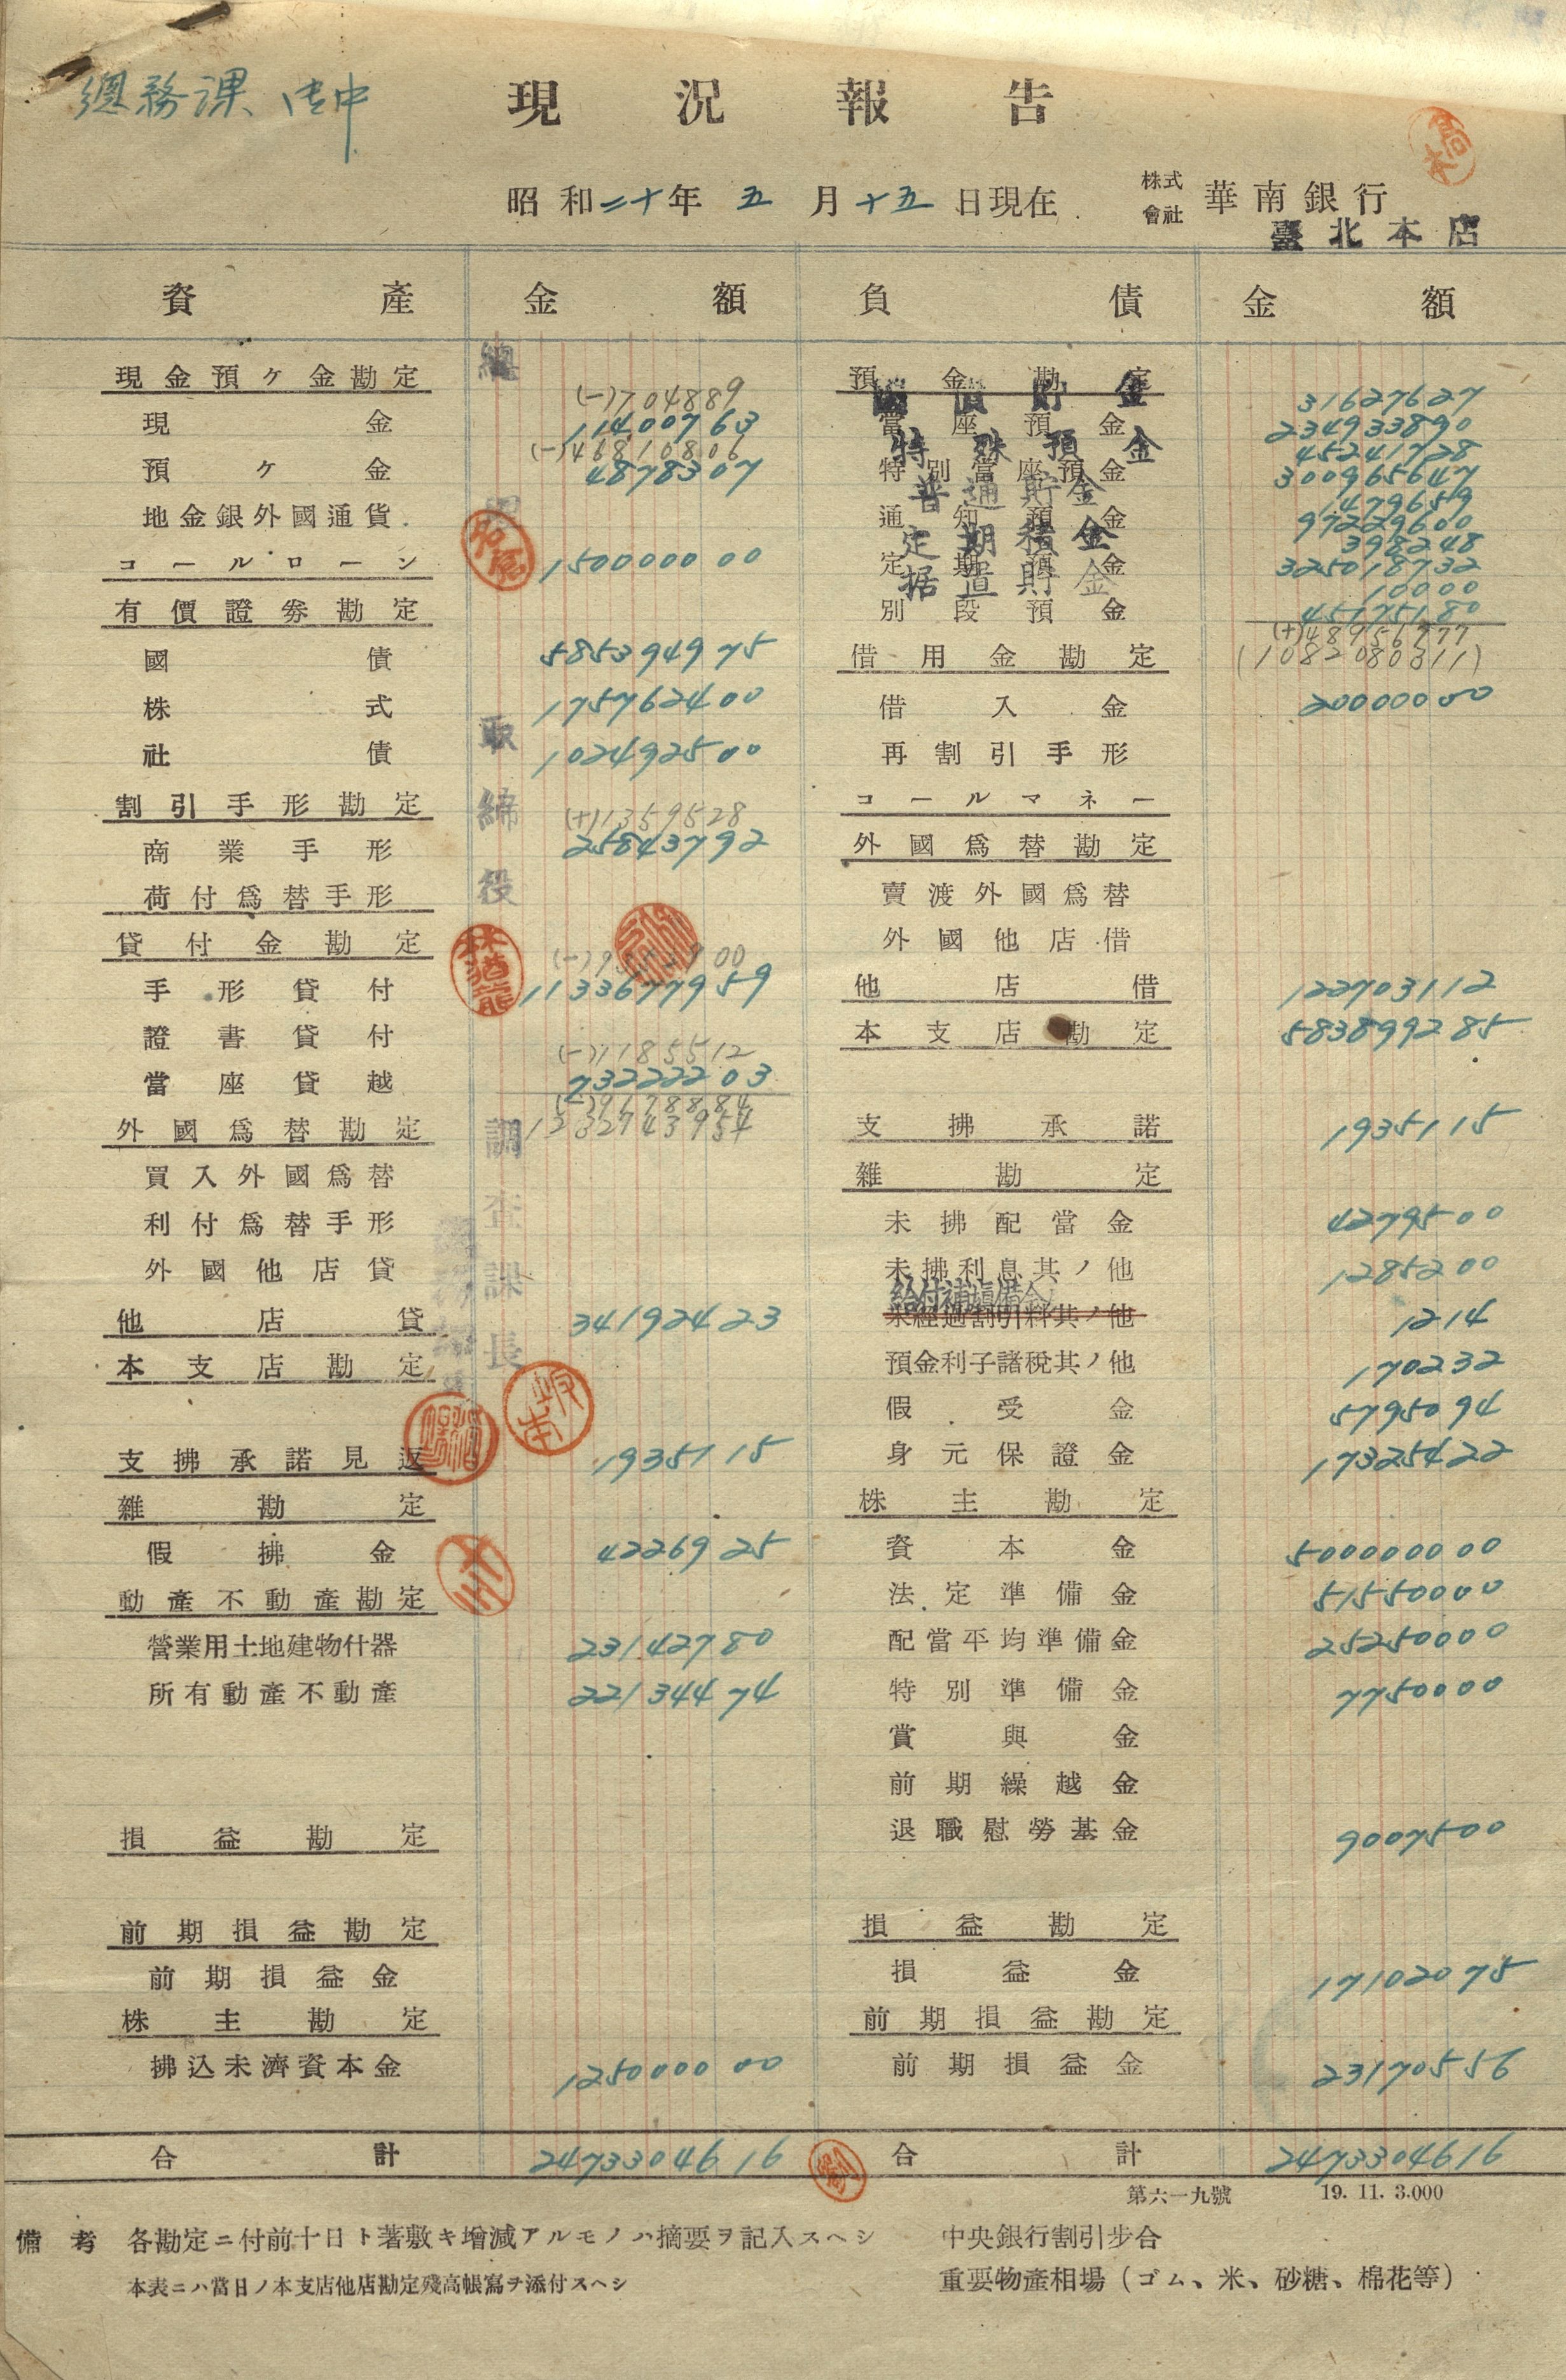 總務課 御中
現況報告
高木
昭和二十年五月十五日現在
株式會社 華南銀行
臺北本店
資產 金額 負債 金額
現金預ケ金勘定
(-)704889
現金 11400763
(-)46810806
預ケ金 4878307
地金銀外國通貨
コールローン 150000000
有價證券勘定
國債 585394975
株式 175762400
社債 102492500
割引手形勘定
(+)1359528
商業手形 25843792
荷付爲替手形
貸付金勘定
手形貸付 1133677959
證書貸付
(-)1185512
當座貸越 73222203
外國爲替勘定
買入外國爲替
利付爲替手形
外國他店貸
他店貸 34192423
本支店勘定
支拂承諾見返 1935115
雜勘定
假拂金 4226925
動產不動產勘定
營業用土地建物什器 23142780
所有動產不動產 22134474
損益勘定
前期損益勘定
前期損益金
株主勘定
拂込未濟資本金 125000000
合計 2473304616
總
取締役
調查課長
林猶龍
坂本
預金勘定
國債貯金 31627627
當座預金 234933890
特殊預金 45241728
特別當座預金 300965647
普通貯金 1479659
通知預金 97229600
定期積金 398248
定期預金 325018732
据置貯金 10000
別段預金 45175180
(+)48956977
(1082080311)
借用金勘定
借入金 20000000
再割引手形
コールマネー
外國爲替勘定
賣渡外國爲替
外國他店借
他店借 122703112
本支店勘定 583899285
支拂承諾 1935115
雜勘定
未拂配當金 4279500
未拂利息其ノ他 1285200
給付補塡備金
未經過割引料其ノ他 1214
預金利子諸稅其ノ他 170232
假受金 5795094
身元保證金 17325422
株主勘定
資本金 500000000
法定準備金 51550000
配當平均準備金 25250000
特別準備金 7750000
賞與金
前期繰越金
退職慰勞基金 9007500
損益勘定
損益金 17102075
前期損益勘定
前期損益金 23170556
合計 2473304616
劉
第六一九號 19. 11. 3.000
備考 各勘定ニ付前十日ト著敷キ增減アルモノハ摘要ヲ記入スヘシ
本表ニハ當日ノ本支店他店勘定殘高帳寫ヲ添付スヘシ
中央銀行割引步合
重要物產相場（ゴム、米、砂糖、棉花等）